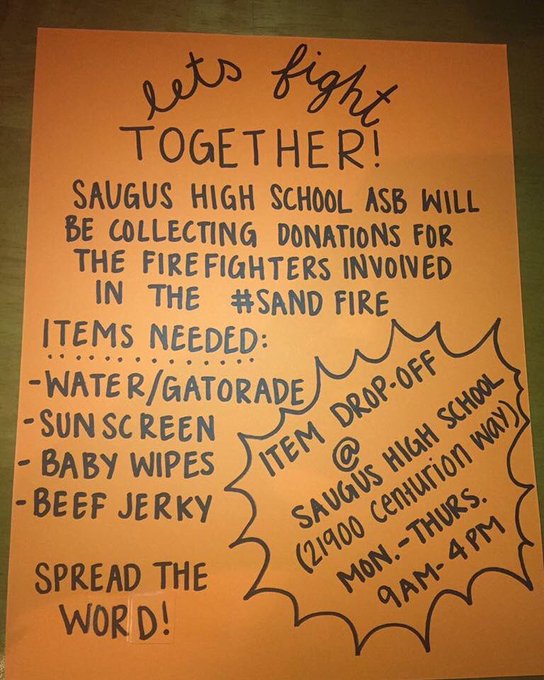 lets fight
TOGETHER!
SAUGUS HIGH SCHOOL ASB WILL
BE COLLECTING DONATIONS FOR
THE FIREFIGHTERS INVOLVED
IN THE #SAND FIRE
ITEMS NEEDED:
-WATER/GATORADE
-SUNSCREEN
- BABY WIPES
-BEEF JERKY
SPREAD THE
WORD!
ITEM DROP-OFF
@
SAUGUS HIGH SCHOOL
(21900 Centurion way)
MON.-THURS.
9AM-4PM